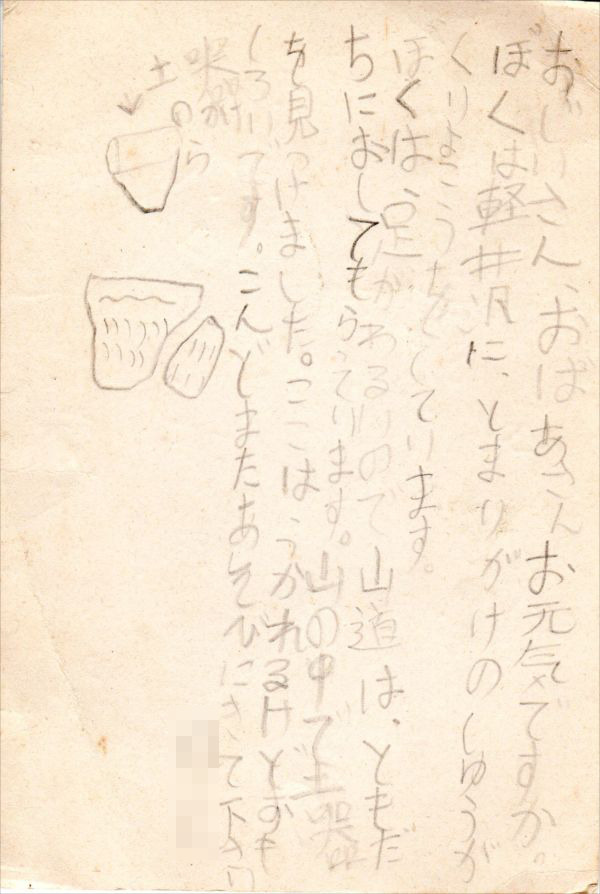 おじいさん、おばあさんお元気ですか。
ぼくは軽井沢に、とまりがけのしゅうが
くりょこうをしています。
ぼくは、足がわるいので山道は、ともだ
ちにおしてもらっています。山の中で土器
を見つけました。ここはつかれるけどおも
しろいです。こんどまたあそびにきて下さい
土器の